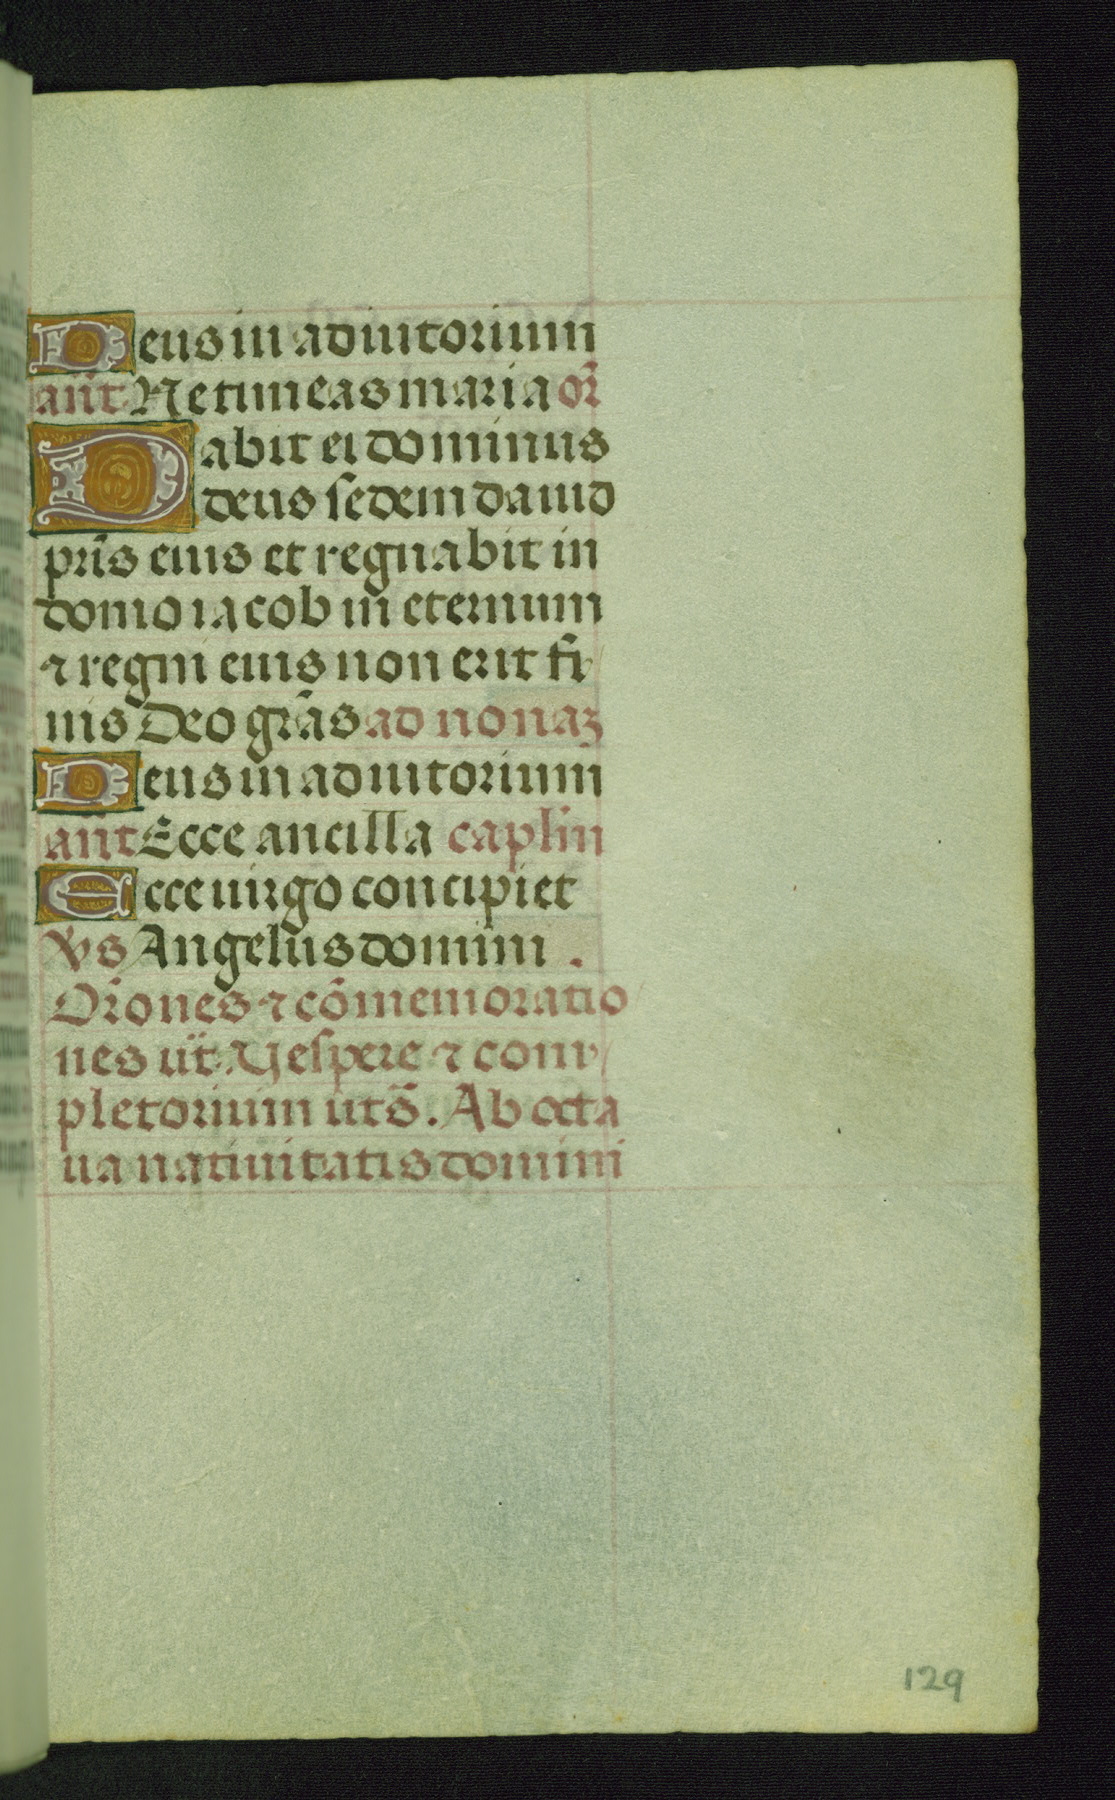 Deus in adiutorium
añt Ne timeas maria or̃
Dabit ei dominus
deus sedem dauid
pr̃is eius et regnabit in
domo iacob in eternum
⁊ regni eius non erit fi
nis Deo gr̃as ad nonaꝫ
Deus in adiutorium
añt Ecce ancilla caplm̃
Ecce uirgo concipiet
V̄s Angelus domini .
Or̃ones ⁊ cõmemoratio
nes ut̃. Vespere ⁊ com
pletorium uts̃. Ab octa
ua natiuitatis domini
129